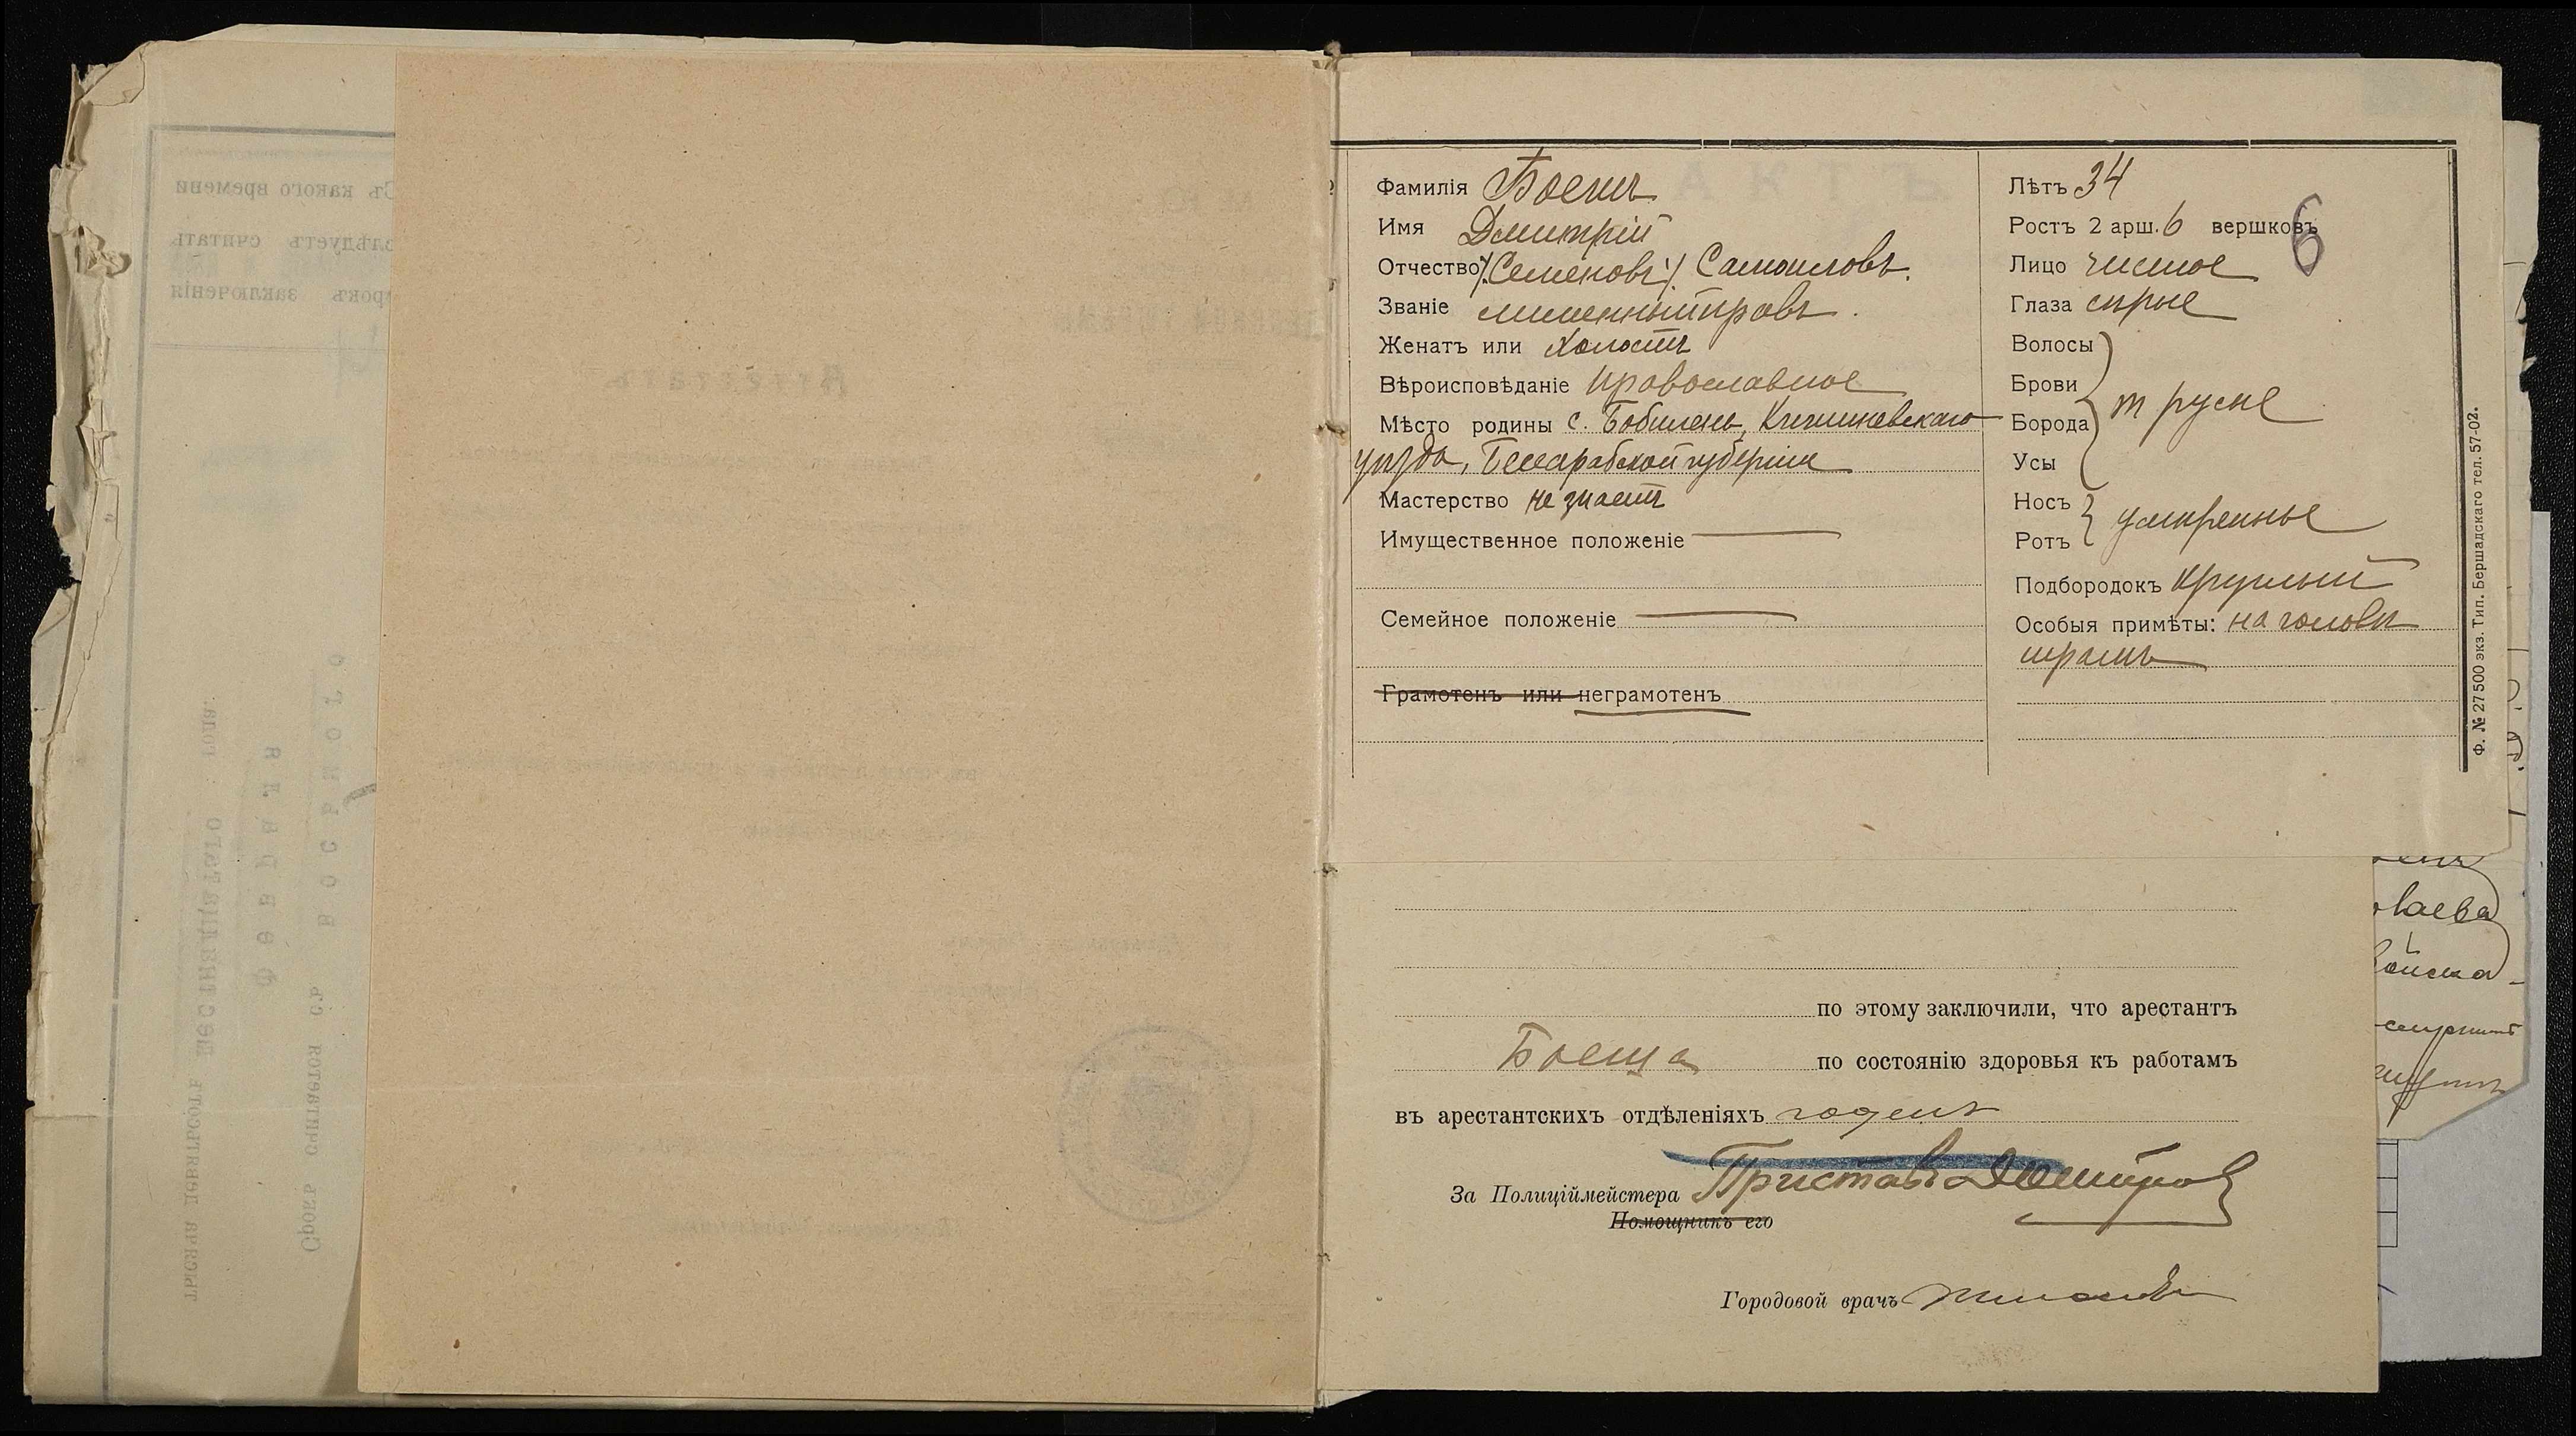 Съ какого времени
слѣдуетъ считать
срокъ заключенія
Срокъ считается съ восьмого
февраля
тысяча девятьсотъ шестнадцатаго года.
Фамилія Боенъ
Имя Дмитрій
Отчество /Семеновъ/ Самоиловъ.
Званіе лишенный правъ.
Женатъ или холостъ
Вѣроисповѣданіе православное
Мѣсто родины с. Бобилень, Кишиневскаго
уѣзда, Бессарабской губерніи
Мастерство не знаетъ
Имущественное положеніе
Семейное положеніе
Грамотенъ или неграмотенъ
Лѣтъ 34
6
Ростъ 2 арш. 6 вершковъ
Лицо чистое
Глаза сѣрые
Волосы
Брови
Борода
Усы
т русые
Носъ
Ротъ
умѣренные
Подбородокъ круглый
Особыя примѣты: на головѣ
шрамъ
Ф. № 27500 экз. Тип. Бершадскаго тел. 57-02.
по этому заключили, что арестантъ
Боенца по состоянію здоровья къ работамъ
въ арестантскихъ отдѣленіяхъ годенъ
За Полиціймейстера Приставъ
Помощникъ его
Городовой врачъ